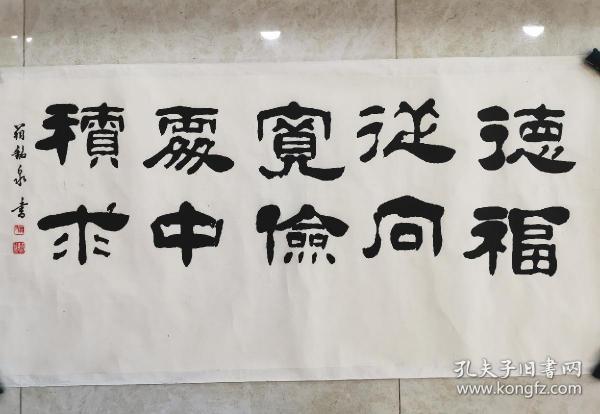 德從寬處積
福向儉中求
翁銘泉書
孔夫子旧书网
www.kongfz.com